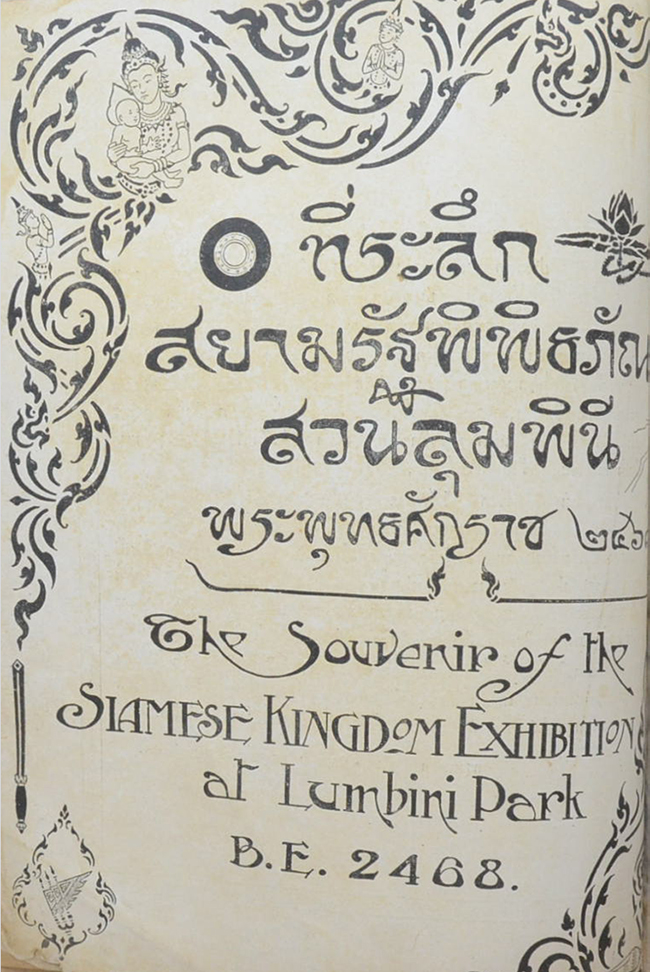 ที่ระลึก
สยามรัฐพิพิธภัณ
สวนลุมพินี
พระพุทธศักราช ๒๔๖
The Souvenir of the
SIAMESE KINGDOM EXHIBITION
at Lumbini Park
B.E. 2468.